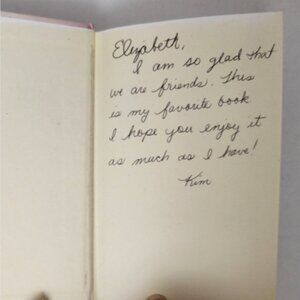 Elizabeth,
I am so glad that
we are friends. This
is my favorite book
I hope you enjoy it
as much as I have!
Kim